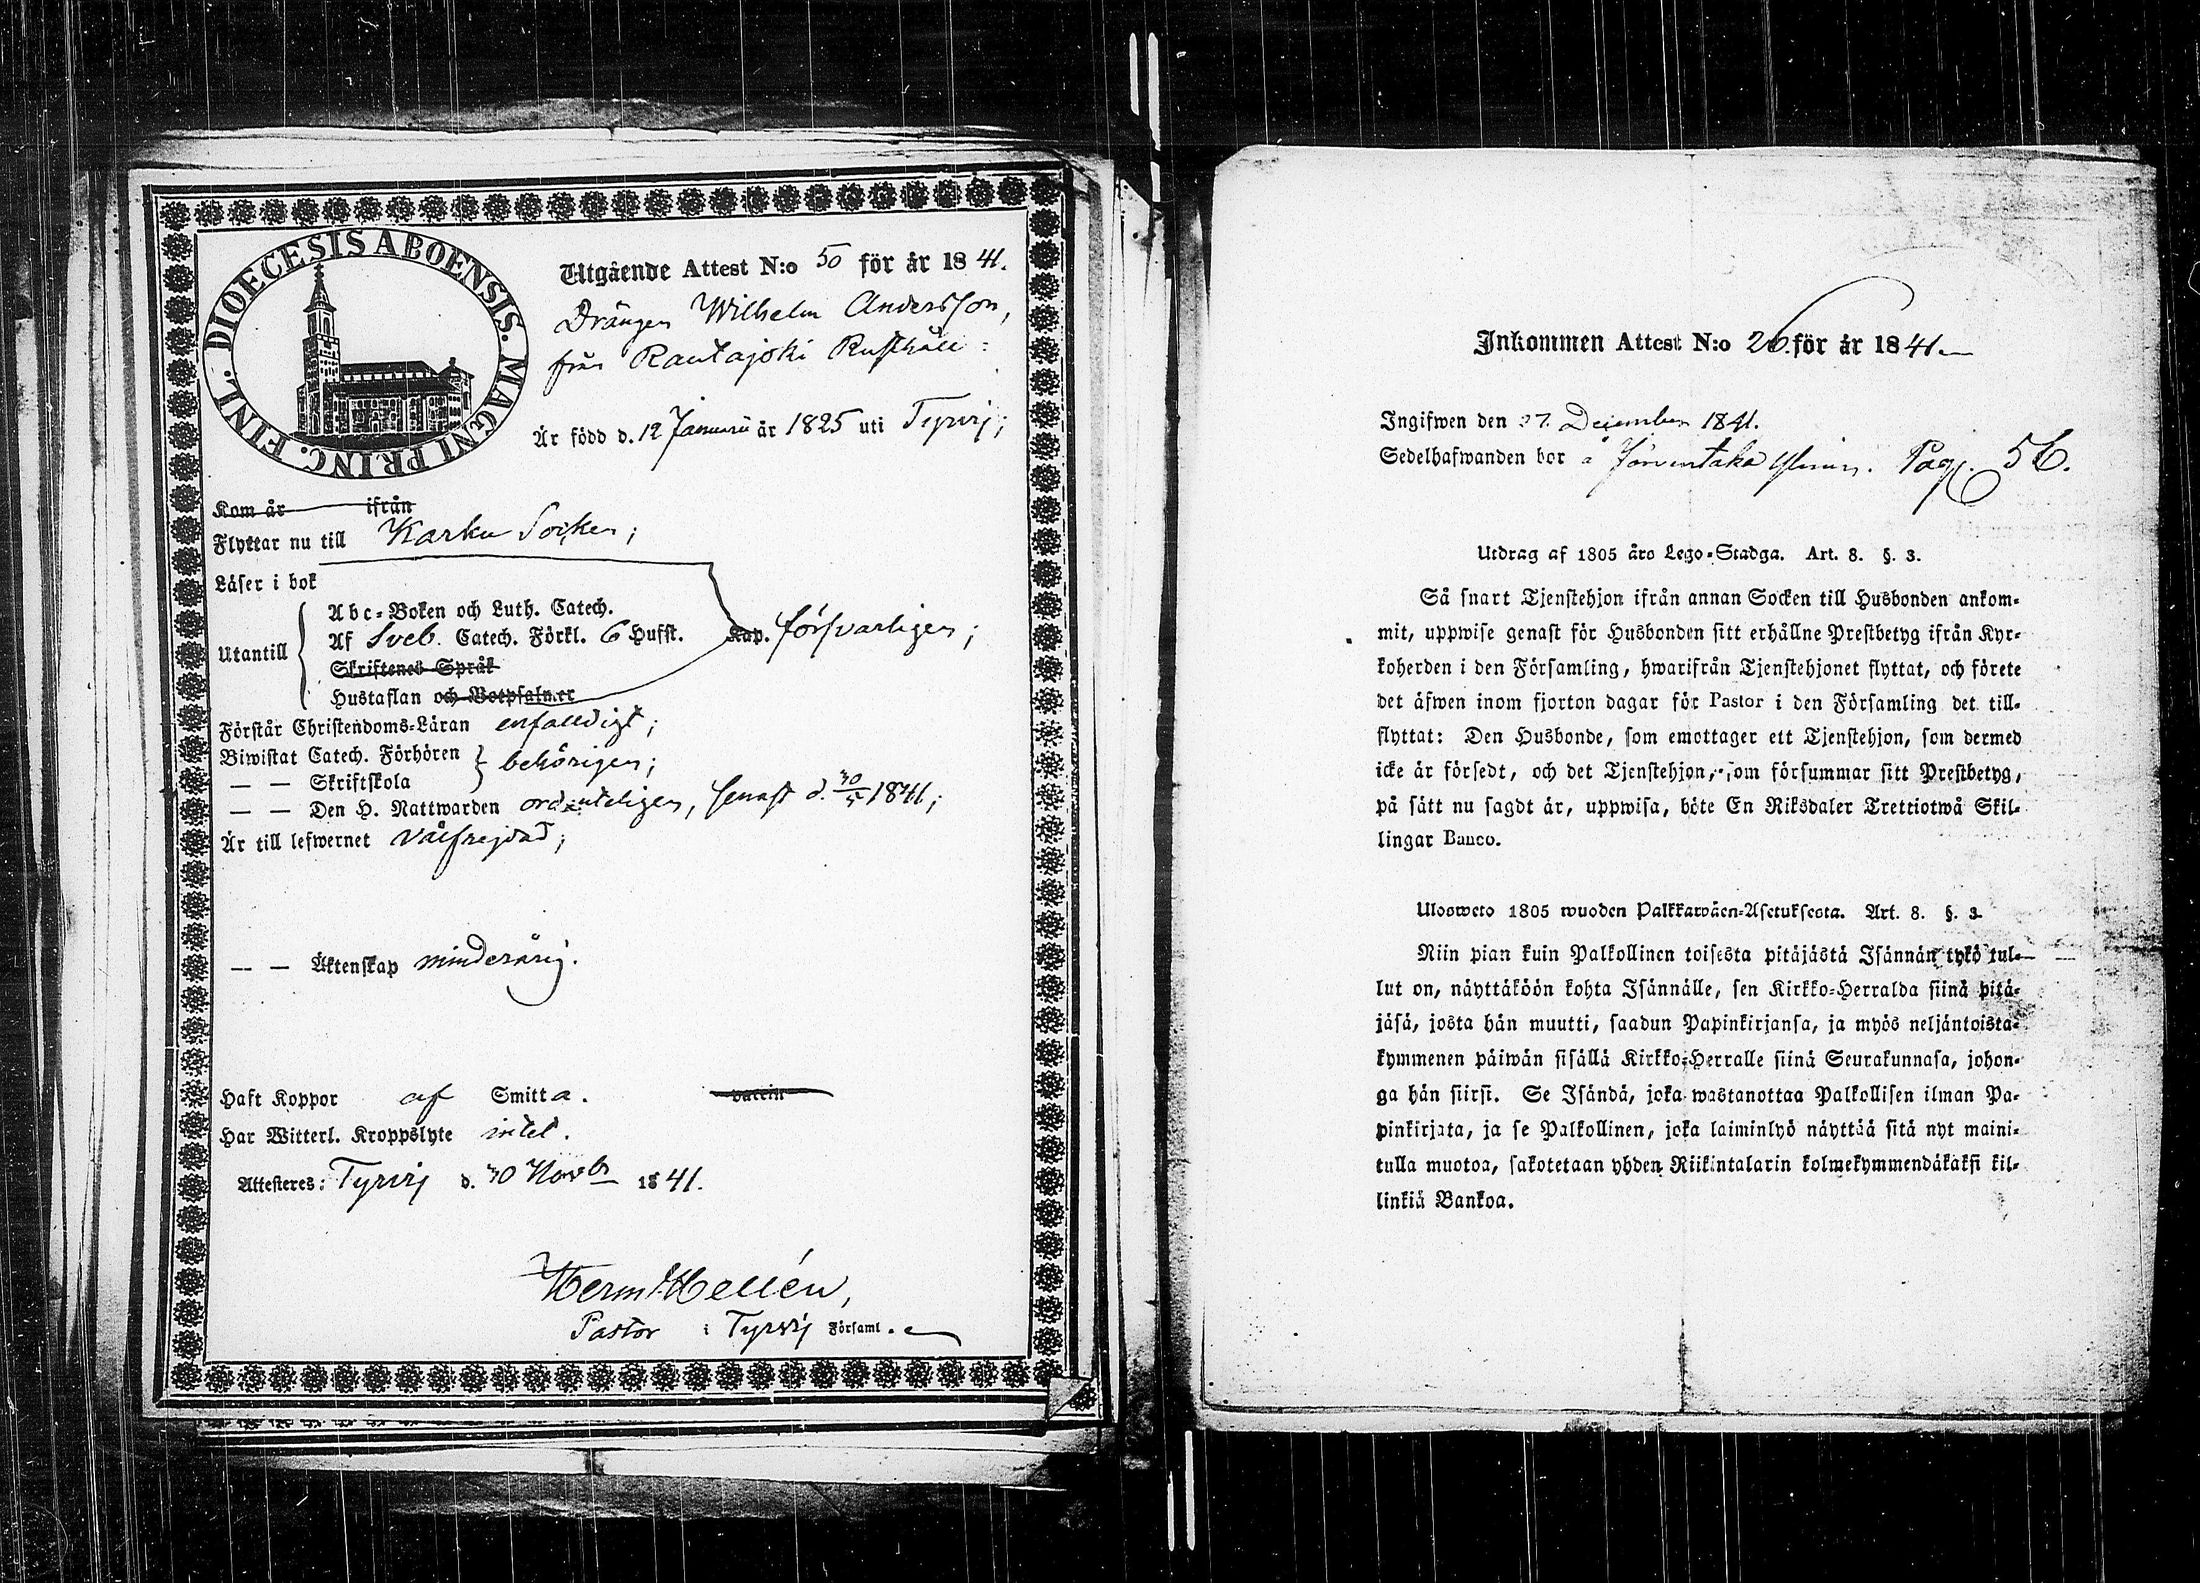 DIOECESIS ABOENSIS. MAGNI PRINC. FINL.
Utgående Attest N:o 50 för år 1841.
Drängen Wilhelm Andersson,
från Rautajoki Rusthåll:
Är född d. 12 Januarii år 1825 uti Tyrvis;
Kom år ifrån
Flyttar nu till Karku Socken;
Läser i bok
Utantill
Abc-Boken och Luth. Catech.
Af Sveb. Catech. Förkl. 6 Hufst. Kap. försvarligen;
Skriftenes Språk
Hustaflan och Botpsalmer
Förstår Christendoms-Läran enfaldigt;
Biwistat Catech. Förhören
— — Skriftskola
behörigen;
— — Den H. Nattwarden ordenteligen, senast d. 30/5 1841;
Är till lefwernet välfrejdad;
— — Äktenskap minderårig.
Haft Koppor af Smitta. vaccin
Har Witterl. Kroppslyte intet.
Attesteres: Tyrvis d. 30 Novbr 1841.
Herm Hellén,
Pastor i Tyrvis Församl.
Inkommen Attest N:o 26. för år 1841.
Ingifwen den 27 December 1841.
Sedelhafwanden bor å Pag. 56.
Utdrag af 1805 års Lego-Stadga. Art. 8. §. 3.
Så snart Tjenstehjon ifrån annan Socken till Husbonden ankom-
mit, uppwise genast för Husbonden sitt erhållne Prestbetyg ifrån Kyr-
koherden i den Församling, hwarifrån Tjenstehjonet flyttat, och förete
det äfwen inom fjorton dagar för Pastor i den Församling det till-
flyttat: Den Husbonde, som emottager ett Tjenstehjon, som dermed
icke är försedt, och det Tjenstehjon, som försummar sitt Prestbetyg,
på sätt nu sagdt är, uppwisa, böte En Riksdaler Trettiotwå Skil-
lingar Banco.
Ulosweto 1805 wuoden Palkkawäen-Asetuksesta. Art. 8. §. 3.
Niin pian kuin Palkollinen toisesta pitäjästä Isännän tykö tul-
lut on, näyttäköön kohta Isännälle, sen Kirkko-Herralda siinä pitä-
jäsä, josta hän muutti, saadun Papinkirjansa, ja myös neljäntoista-
kymmenen päiwän sisällä Kirkko-Herralle siinä Seurakunnasa, johon-
ga hän siirsi. Se Isändä, joka wastanottaa Palkollisen ilman Pa-
pinkirjata, ja se Palkollinen, joka laiminlyö näyttää sitä nyt maini-
tulla muotoa, sakotetaan yhden Riikintalarin kolmekymmendäkaksi kil-
linkiä Bankoa.